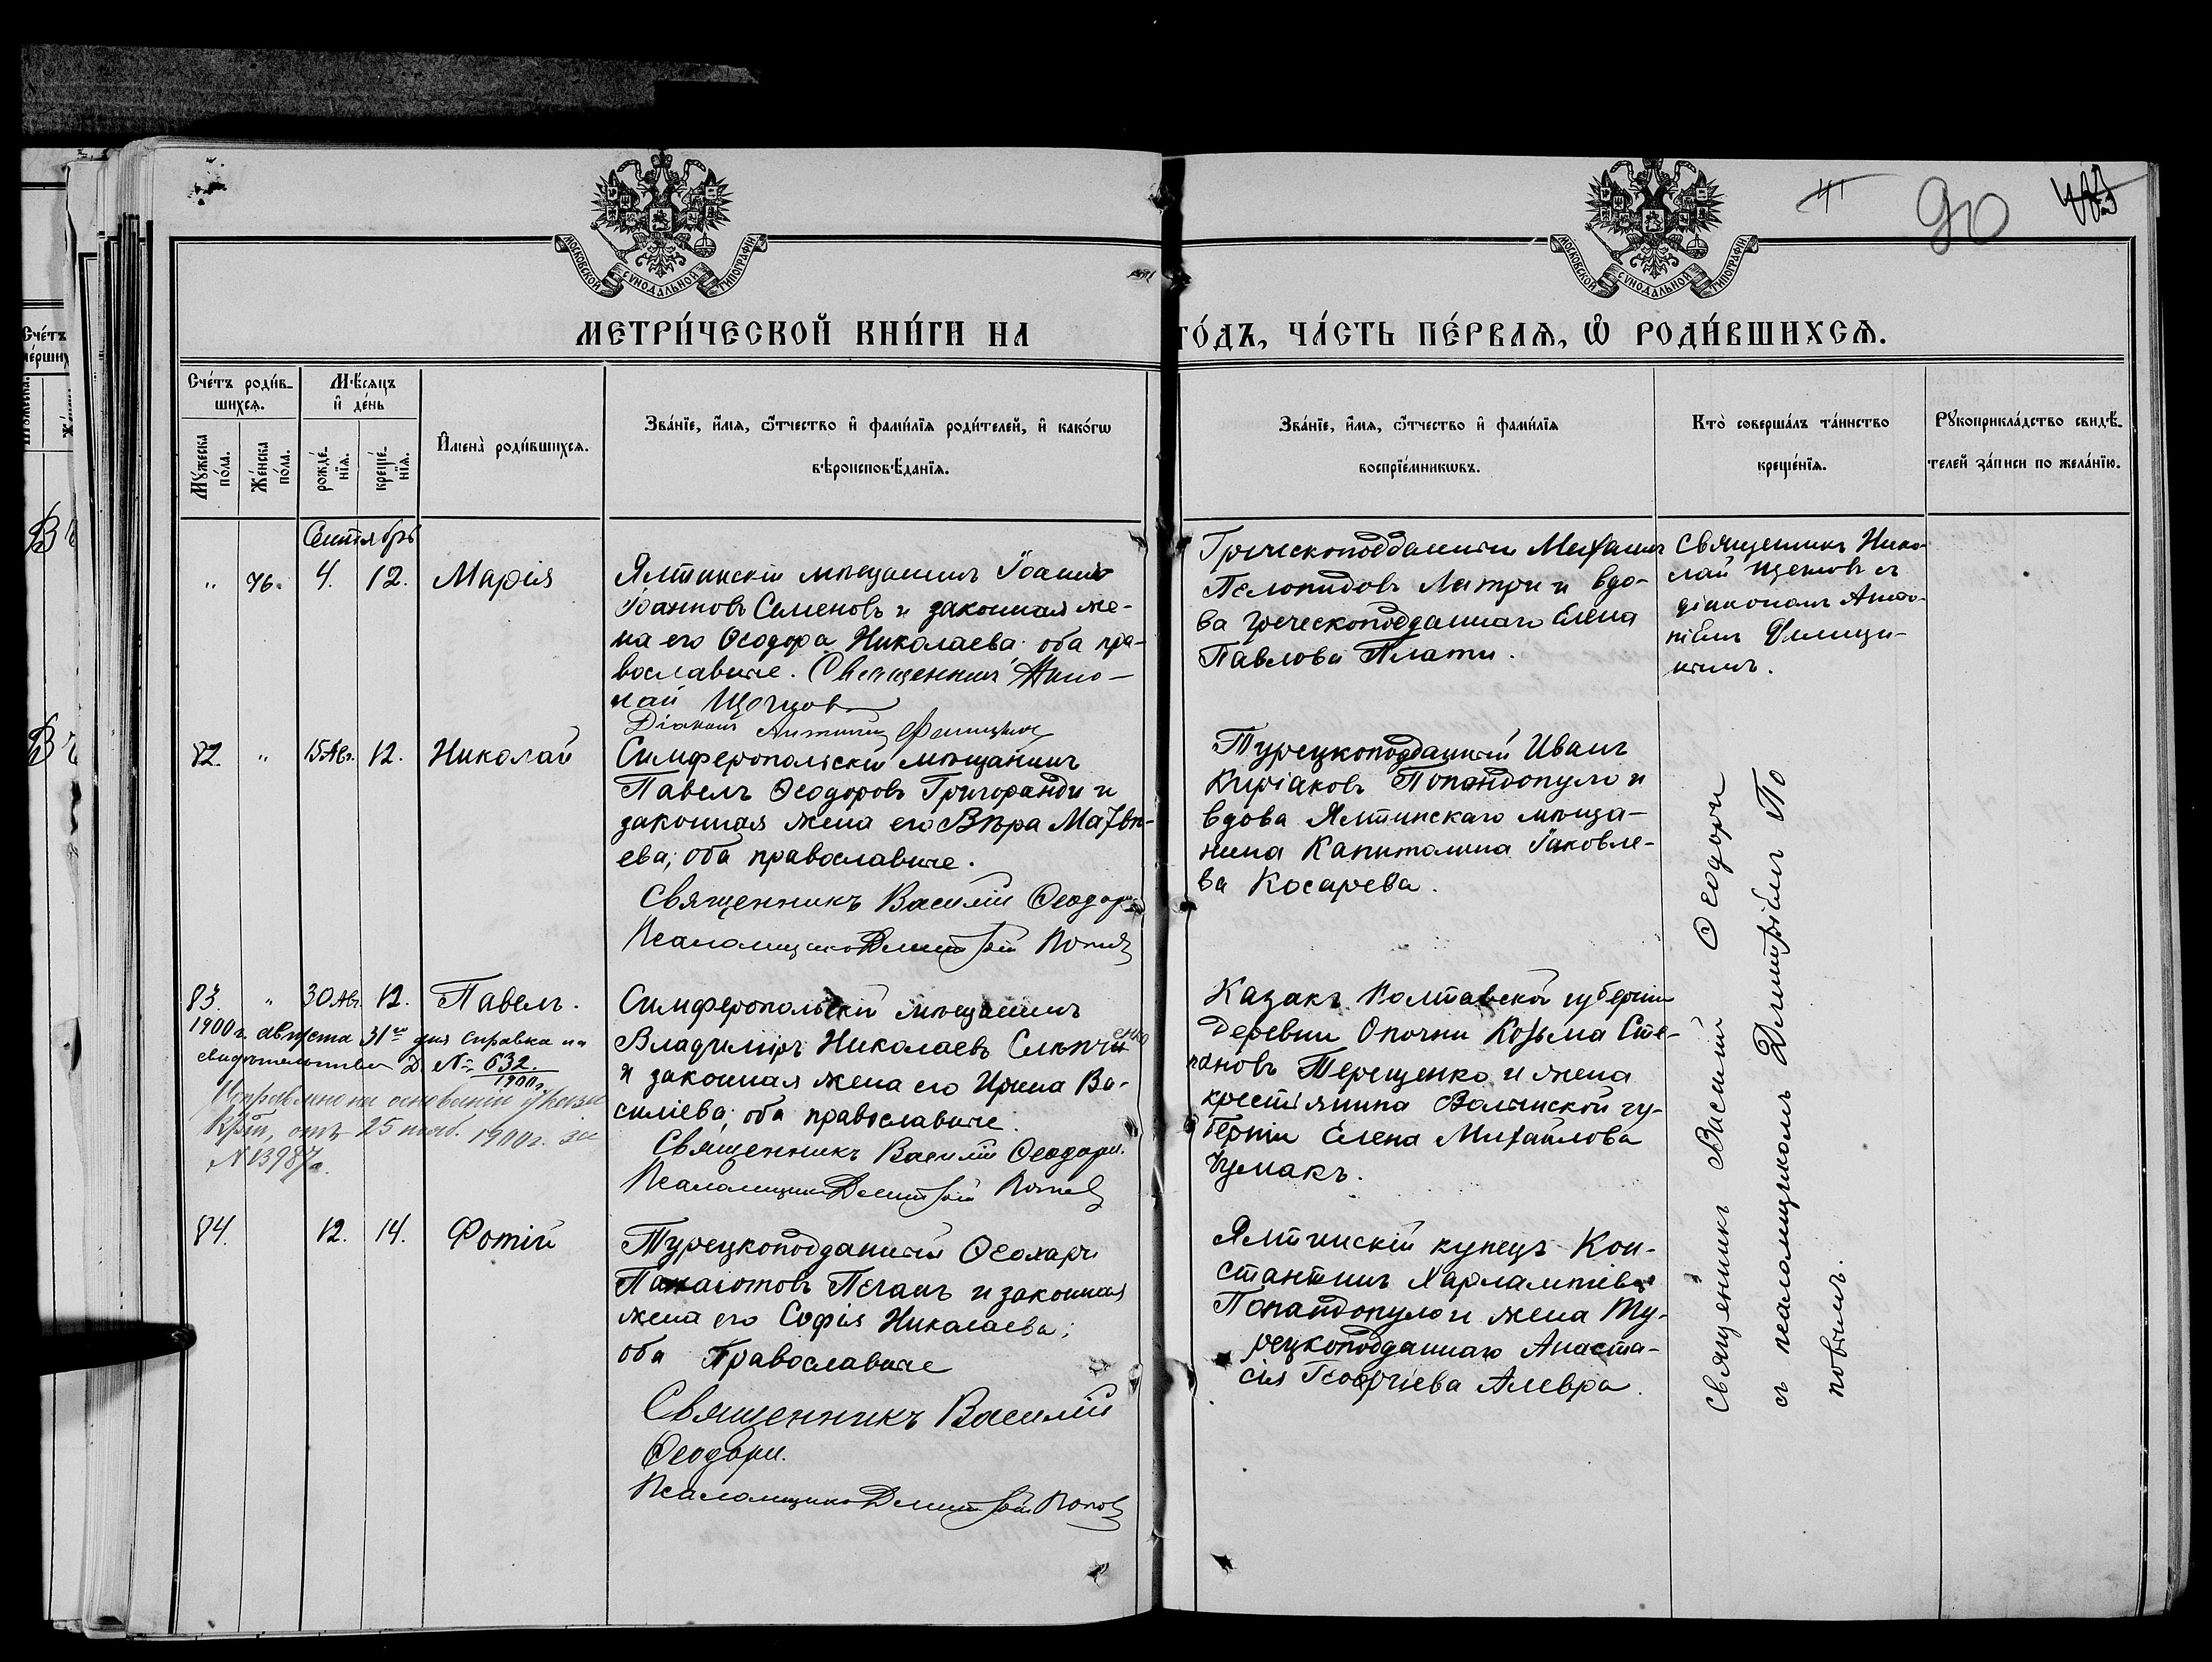 МОСКОВСКОЙ СѴНОДАЛЬНОЙ ТИПОГРАФІИ
МОСКОВСКОЙ СѴНОДАЛЬНОЙ ТИПОГРАФІИ
90
МЕТРИ́ЧЕСКОЙ КНИ́ГИ НА
ГО́ДЪ, ЧА́СТЬ ПЕ́РВАѦ, Ѡ҆ РОДИ́ВШИХСѦ.
Сче́тъ роди́в-
шихсѧ.
Мꙋ́жеска
по́ла.
Же́нска
по́ла.
Мѣ́сѧцъ
и҆ де́нь
рожде́-
нїѧ.
креще́-
нїѧ.
И҆мена̀ роди́вшихсѧ.
Зва́нїе, и҆́мѧ, ѻ҆́тчество и҆ фами́лїѧ роди́телей, и҆ како́гѡ
вѣроисповѣ́данїѧ.
Зва́нїе, и҆́мѧ, ѻ҆́тчество и҆ фами́лїѧ
воспрїе́мникѡвъ.
Кто̀ соверша́лъ та́инство
креще́нїѧ.
Рꙋкоприкла́дство свидѣ́-
телей за́писи по жела́нїю.
Сентябрь
" 76. 4. 12. Марія
Ялтинскій мѣщанинъ Іоаннъ
Іоанновъ Семеновъ и законная же-
на его Ѳеодора Николаева; оба пра-
вославные. Священникъ Нико-
лай Щегловъ
Діаконъ Антипій Феницкій
Греческоподданный Михаилъ
Пелопидовъ Латри и вдо-
ва греческоподданнаго Елена
Павлова Плати.
Священникъ Нико-
лай Щегловъ съ
діакономъ Анти-
піемъ Феницкимъ.
82. " 15 Авг. 12. Николай
Симферопольскій мѣщанинъ
Павелъ Ѳеодоровъ Григоранди и
законная жена его Вѣра Матвѣ-
ева; оба православные.
Священникъ Василій Ѳеодори
Псаломщикъ Димитрій Поповъ
Турецкоподданный Иванъ
Киріаковъ Попандопуло и
вдова Ялтинскаго мѣща-
нина Капитолина Іаковле-
ва Косарева.
83. " 30 Авг. 12. Павелъ.
1900 г. августа 31го дня справка и
свидѣтельство Д. № 632.
1900 г.
Исправлено на основаніи указа
отъ 25 1900 г. за
№ 13987
Симферопольскій мѣщанинъ
Владиміръ Николаевъ
и законная жена его Ирина Ва-
силіева; оба православные.
Священникъ Василій Ѳеодори.
Псаломщикъ Димитрій Поповъ
Казакъ Полтавской губерніи
деревни Опочни Козьма Сте-
пановъ Терещенко и жена
крестьянина Волынской гу-
берніи Елена Михайлова
Чумакъ.
84. 12. 14. Фотій
Турецкоподданный Ѳеохари
Панаіотовъ Пеганъ и законная
жена его Софія Николаева;
оба Православные
Священникъ Василій
Ѳеодори.
Псаломщикъ Димитрій Поповъ
Ялтинскій купецъ Кон-
стантинъ Харлампіевъ
Попандопуло и жена Ту-
рецкоподданнаго Анаста-
сія Георгіева Алевра.
Священникъ Василій Ѳеодори
съ псаломщикомъ Димитріемъ По
повымъ.